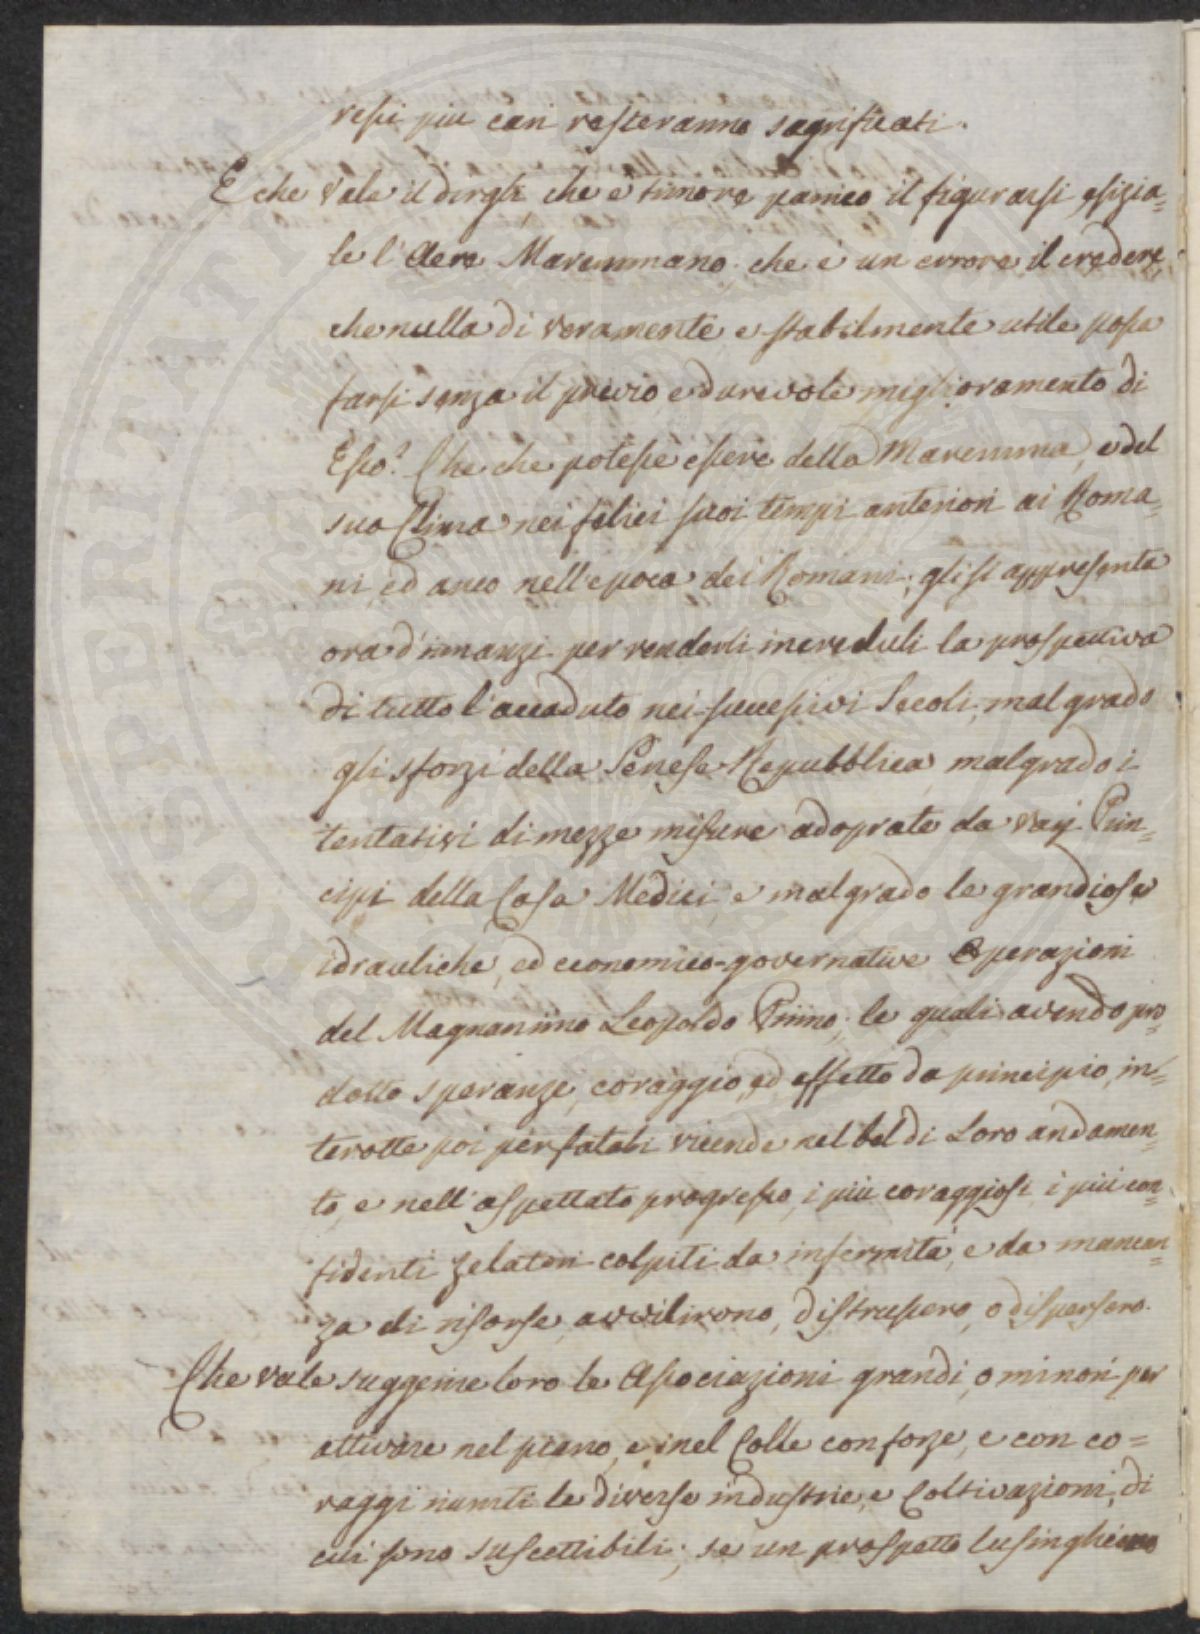 ressi piu cari resteranno sagrificati.
E che vale il dirgli che è timore panico il figurarsi esizia=
le l'Aere Maremmano, che è un errore il credere,
che nulla di veramente e stabilmente utile possa
farsi senza il previo, e durevole miglioramento di
Esso? Che che potesse essere della Maremma, e del
suo Clima nei felici suoi tempi anteriori ai Roma=
ni, ed anco nell'epoca dei Romani, gli si appresenta
ora d'innanzi per renderli increduli la prospettiva
di tutto l'accaduto nei successivi Secoli, malgrado
gli sforzi della Senese Repubblica, malgrado i
tentativi di mezze misure adoprate da varj Prin=
cipi della Casa Medici, e malgrado le grandiose
idrauliche, ed economico-governative Operazioni
del Magnanimo Leopoldo Primo, le quali avendo pro=
dotto speranze, coraggio, ed effetto da principio, in=
terotte poi per fatali vicende nel bel di Loro andamen=
to, e nell'aspettato progresso, i più coraggiosi, i più con=
fidenti zelatori colpiti da infermità, e da mancan=
za di risorse, avvilirono, distrussero, o dispersero.
Che vale suggerire loro le Associazioni grandi, o minori per
attivare nel piano, e nel Colle con forze, e con co=
raggi riuniti le diverse industrie, e Coltivazioni, di
cui sono suscettibili, se un prospetto lusinghiero
PROSPERITATI